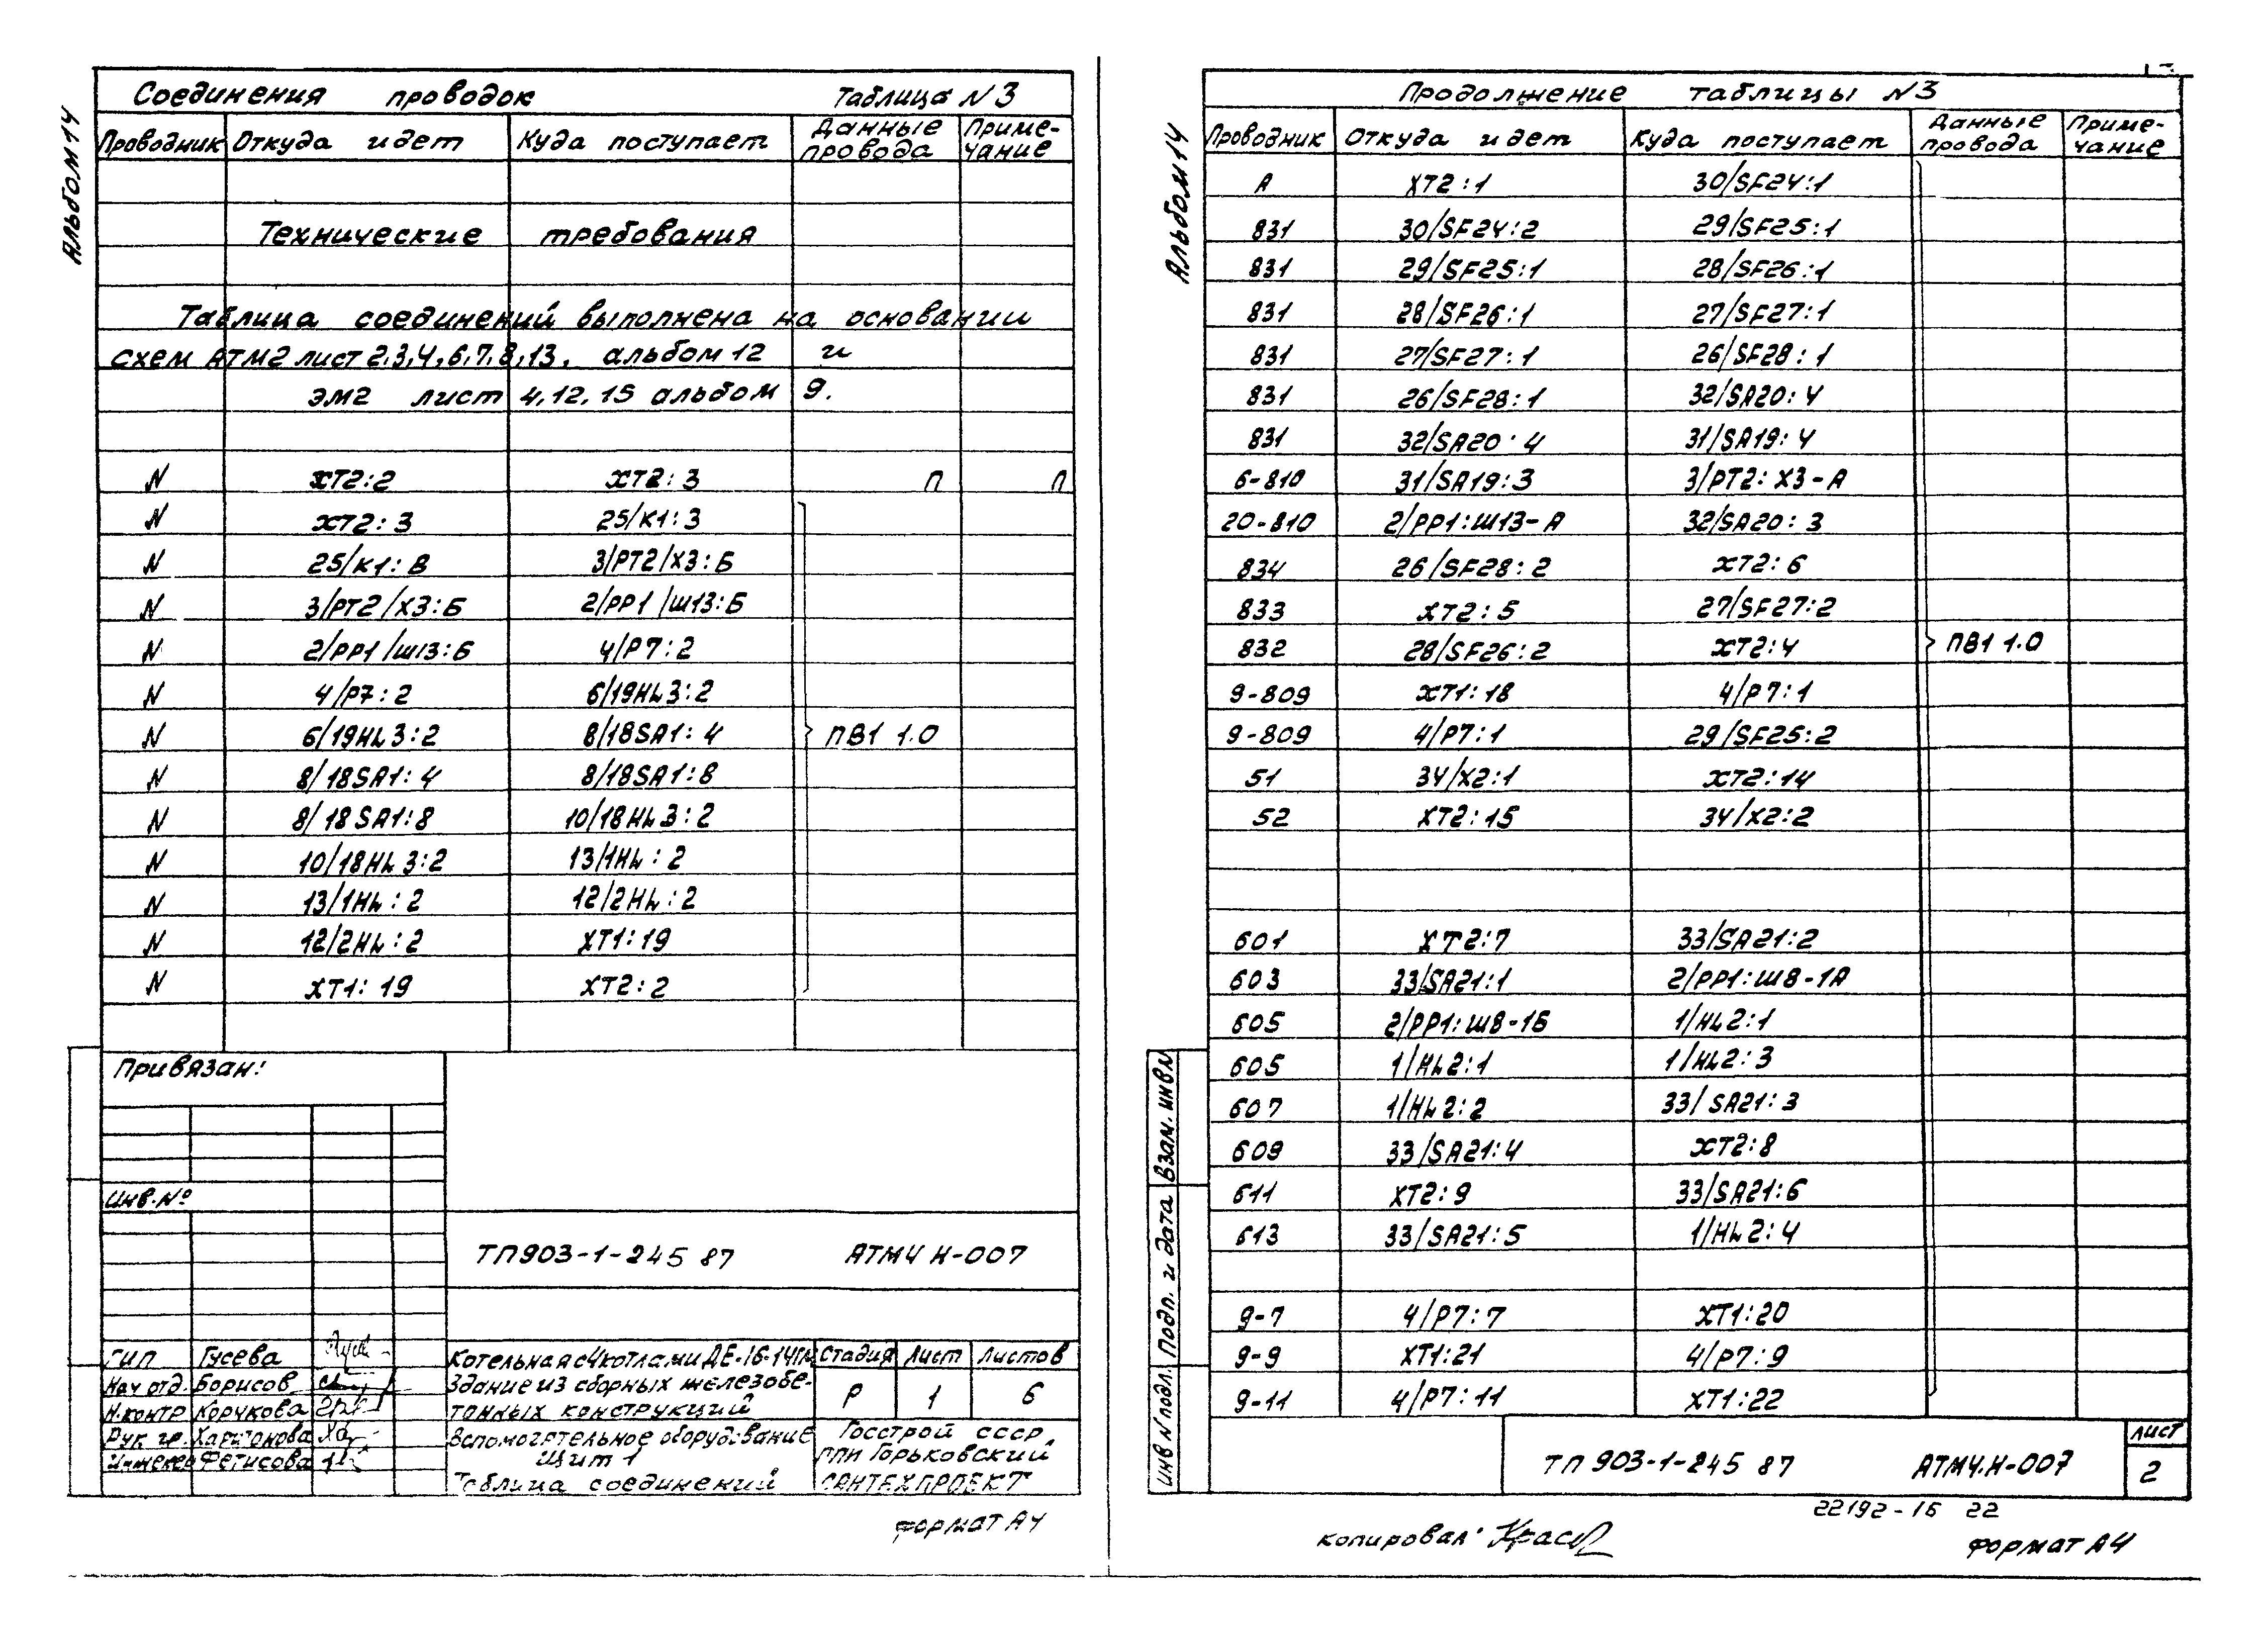 Альбом 14
Соединения проводок Таблица N 3
Проводник Откуда идет Куда поступает Данные провода Примечание
Технические требования
Таблица соединений выполнена на основании
схем АТМ2 лист 2,3,4,6,7,8,13, альбом 12 и
ЭМ2 лист 4,12,15 альбом 9.
N ХТ2:2 ХТ2:3 П П
N ХТ2:3 25/К1:3
N 25/К1:В 3/РТ2/Х3:Б
N 3/РТ2/Х3:Б 2/РР1/Ш13:Б
N 2/РР1/Ш13:Б 4/Р7:2
N 4/Р7:2 6/19HL3:2
N 6/19HL3:2 8/18SA1:4 ПВ1 1.0
N 8/18SA1:4 8/18SA1:8
N 8/18SA1:8 10/18HL3:2
N 10/18HL3:2 13/1HL:2
N 13/1HL:2 12/2HL:2
N 12/2HL:2 ХТ1:19
N ХТ1:19 ХТ2:2
Привязан:
Инв.№
ТП903-1-245 87 АТМ4 Н-007
ГИП Гусева
Нач отд. Борисов
Н.контр Корчкова
Рук гр. Харитонова
Инженер Фетисова
Котельная с 4 котлами ДЕ-16-14ГМ
Здание из сборных железобе-
тонных конструкций
Стадия Лист Листов
Р 1 6
Вспомогательное оборудование
Щит 1
Таблица соединений
Госстрой СССР
ГПИ Горьковский
САНТЕХПРОЕКТ
Формат А4
Альбом 14
Продолжение таблицы N3
Проводник Откуда идет Куда поступает Данные провода Примечание
А ХТ2:1 30/SF24:1
831 30/SF24:2 29/SF25:1
831 29/SF25:1 28/SF26:1
831 28/SF26:1 27/SF27:1
831 27/SF27:1 26/SF28:1
831 26/SF28:1 32/SA20:4
831 32/SA20:4 31/SA19:4
6-810 31/SA19:3 3/РТ2:Х3-А
20-810 2/РР1:Ш13-А 32/SA20:3
834 26/SF28:2 ХТ2:6
833 ХТ2:5 27/SF27:2
832 28/SF26:2 ХТ2:4 ПВ1 1.0
9-809 ХТ1:18 4/Р7:1
9-809 4/Р7:1 29/SF25:2
51 34/Х2:1 ХТ2:14
52 ХТ2:15 34/Х2:2
601 ХТ2:7 33/SA21:2
603 33/SA21:1 2/РР1:Ш8-1А
605 2/РР1:Ш8-1Б 1/HL2:1
605 1/HL2:1 1/HL2:3
607 1/HL2:2 33/SA21:3
609 33/SA21:4 ХТ2:8
611 ХТ2:9 33/SA21:6
613 33/SA21:5 1/HL2:4
9-7 4/Р7:7 ХТ1:20
9-9 ХТ1:21 4/Р7:9
9-11 4/Р7:11 ХТ1:22
Взам. инв N
Подп. и дата
Инв N подл.
ТП 903-1-245 87 АТМ4.Н-007
Лист
2
22192-16 22
Копировал:
Формат А4